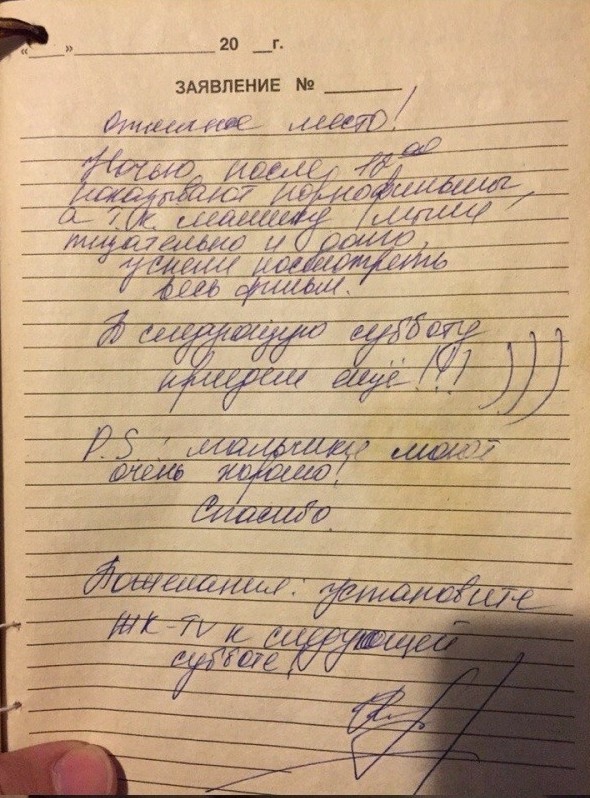 «___»______________ 20 __г.
ЗАЯВЛЕНИЕ № ________
Отличное место!
Ночью, после 12⁰⁰
показывают порнофильмы,
а т.к. машину мыли
тщательно и долго,
успели посмотреть
весь фильм.
В следующую субботу
приедем ещё!!! )))
P.S: мальчики моют
очень хорошо!
Спасибо.
Пожелания: установите
ЖК-TV к следующей
субботе!